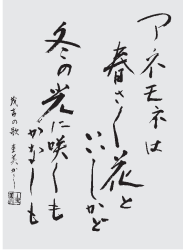 アネモネは
春さく花と
いひしかど
冬の光に咲くも
かなしも
茂吉の歌